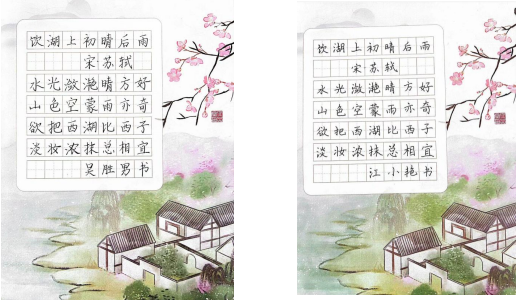 饮湖上初晴后雨
宋苏轼
水光潋滟晴方好
山色空蒙雨亦奇
欲把西湖比西子
淡妆浓抹总相宜
吴胜男书
饮湖上初晴后雨
宋苏轼
水光潋滟晴方好
山色空蒙雨亦奇
欲把西湖比西子
淡妆浓抹总相宜
江小艳书